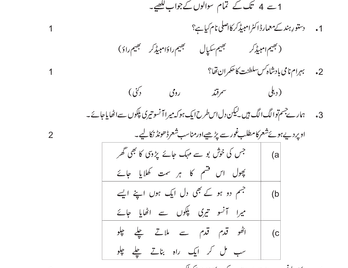 1 سے 4 تک کے تمام سوالوں کے جواب لکھیے۔
1۔ دستور ہند کے معمار ڈاکٹر امبیڈکر کا اصلی نام کیا ہے؟ 1
(بھیم امبیڈکر بھیم سکپال بھیم راؤ امبیڈکر بھیم راؤ)
2۔ بہرام نامی بادشاہ کس سلطنت کا حکمران تھا؟ 1
(دہلی سمرقند رومی دکنی)
3۔ ہمارے جسم تو الگ الگ ہیں۔ لیکن دل اس طرح ایک ہو کہ میرا آنسو تیری پلکوں سے اٹھایا جائے۔
اوپر دیے ہوئے شعر کا مطلب غور سے پڑھیے اور مناسب شعر ڈھونڈ نکالیے۔ 2
(a جس کی خوش بو سے مہک جائے پڑوسی کا بھی گھر
پھول اس قسم کا ہر سمت کھلایا جائے
(b جسم دو ہو کے بھی دل ایک ہوں اپنے ایسے
میرا آنسو تیری پلکوں سے اٹھایا جائے
(c اٹھو قدم قدم سے ملاتے چلے چلو
سب مل کر ایک راہ بناتے چلے چلو